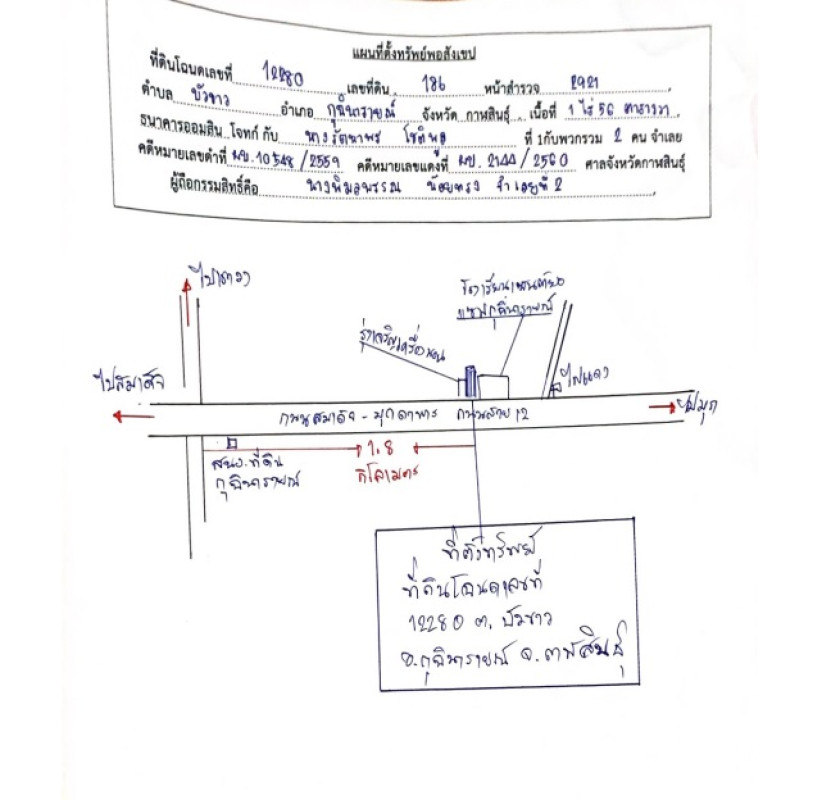 แผนที่ตั้งทรัพย์พอสังเขป
ที่ดินโฉนดเลขที่ 12280 เลขที่ดิน 186 หน้าสำรวจ 2921
ตำบล บัวขาว อำเภอ กุฉินารายณ์ จังหวัด กาฬสินธุ์ เนื้อที่ 1 ไร่ 56 ตารางวา
ธนาคารออมสิน โจทก์ กับ นางรัตนาพร ที่ 1กับพวกรวม 2 คน จำเลย
คดีหมายเลขดำที่ ผบ.10548/2559 คดีหมายเลขแดงที่ ผบ.2144/2560 ศาลจังหวัดกาฬสินธุ์
ผู้ถือกรรมสิทธิ์คือ นางพิมลพรรณ น้อยทรง จำเลยที่ 2
ไป
โรงเรียน
กุฉินารายณ์
รุ่งเจริญเครื่องนอน
ไปสมเด็จ
ไฟแดง
ถนนสมเด็จ - มุกดาหาร ถนนสาย 12
ไปมุก
สนง.ที่ดิน
กุฉินารายณ์
1.8
กิโลเมตร
ที่ตั้งทรัพย์
ที่ดินโฉนดเลขที่
12280 ต. บัวขาว
อ.กุฉินารายณ์ จ.กาฬสินธุ์